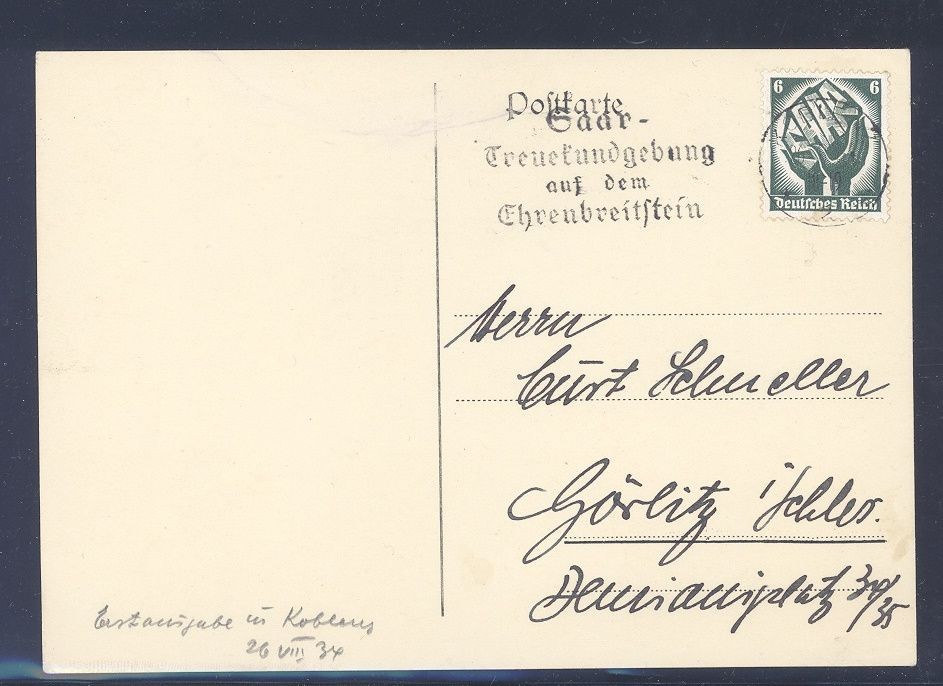 Postkarte
Saar-
Treuekundgebung
auf dem
Ehrenbreitstein
6 6
Deutsches Reich
Herrn
Curt Schmeller
Görlitz i/Schles.
Demianiplatz 34/35
Erstausgabe in Koblenz
26 VIII 34